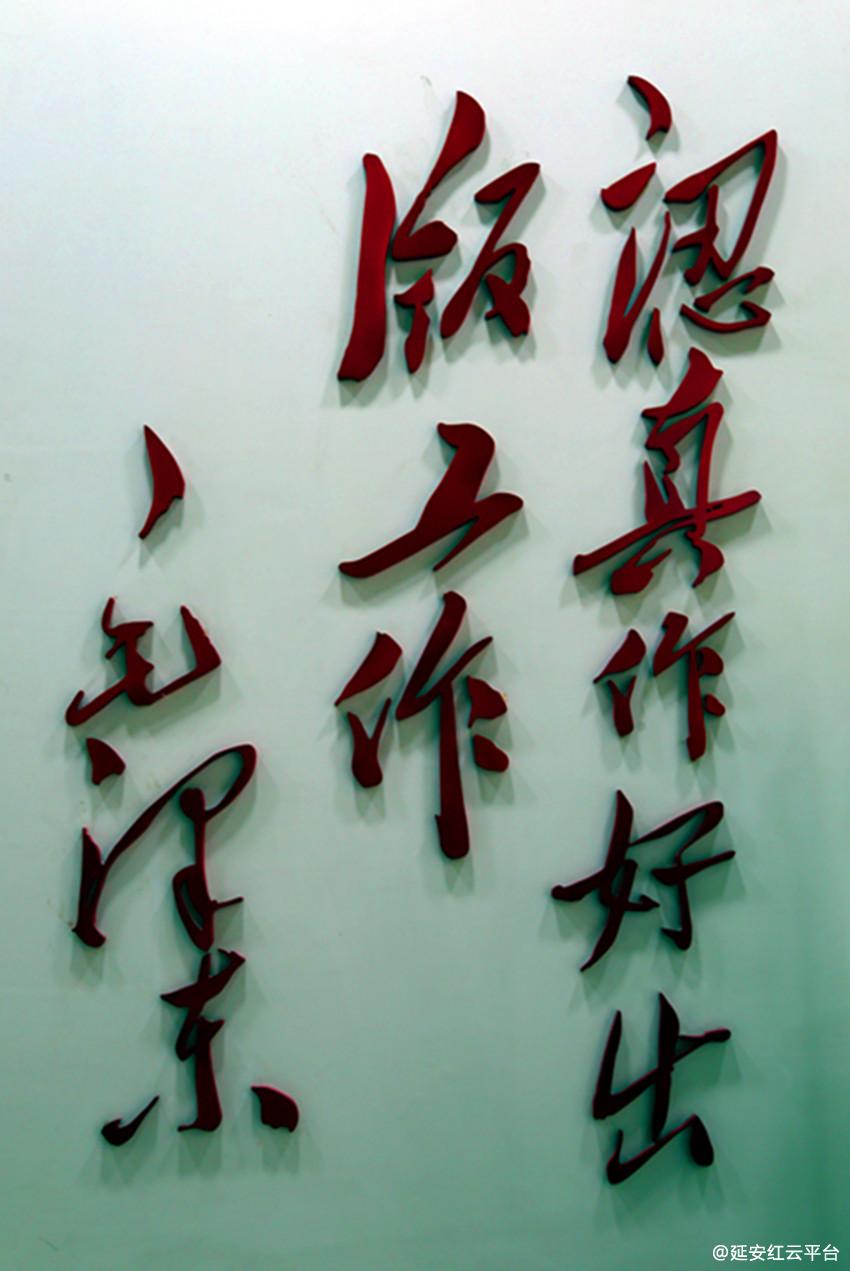 認真作好出
版工作
毛澤东
@延安红云平台